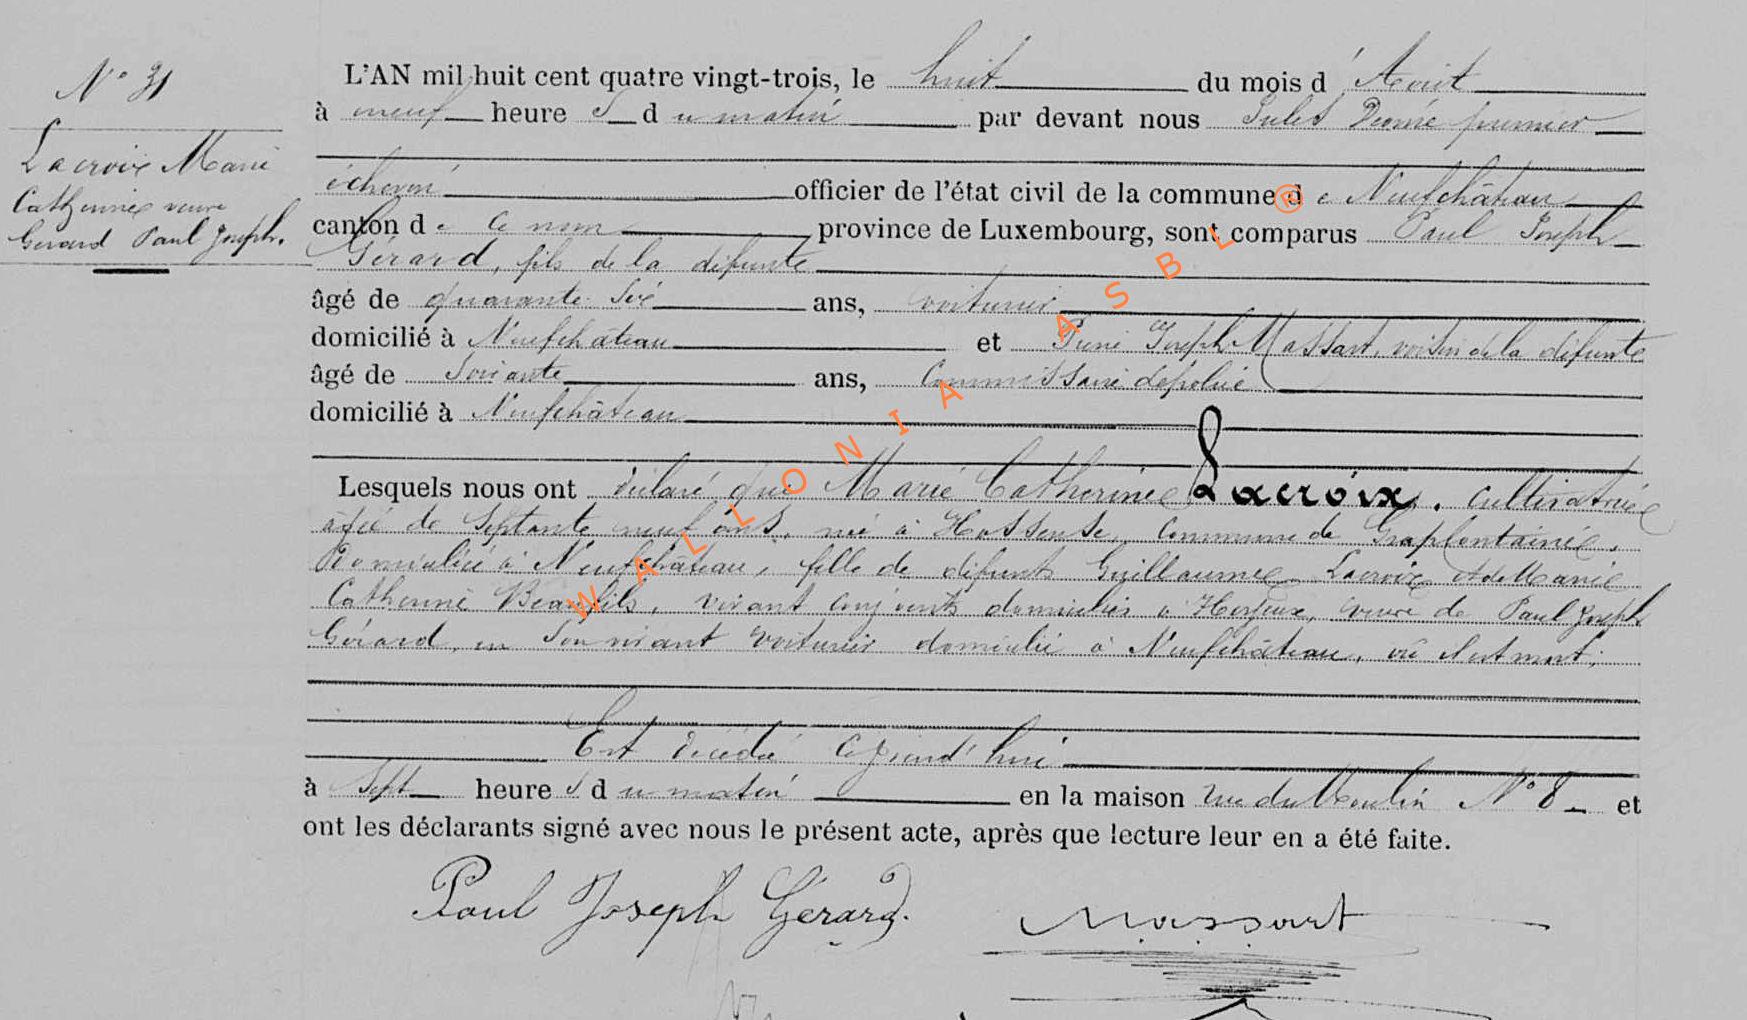 N° 31
Lacroix Marie
Catherine veuve
Gérard Paul Joseph.
L'AN mil huit cent quatre vingt-trois, le huit du mois d'Août
à neuf heure s du matin par devant nous Jules premier
échevin officier de l'état civil de la commune de Neufchâteau
canton de ce nom province de Luxembourg, sont comparus Paul Joseph
Gérard, fils de la défunte
âgé de quarante six ans, voiturier
domicilié à Neufchâteau et Pierre Joseph Massart, voisin de la défunte
âgé de soixante ans, Commissaire de police
domicilié à Neufchâteau
Lesquels nous ont déclaré que Marie Catherine Lacroix, cultivatrice
âgée de septante neuf ans, née à commune de Grapfontaine,
domiciliée à Neufchâteau, fille de défunts Guillaume Lacroix et de Marie
Catherine Beaufils, vivant conjoints domiciliés à veuve de Paul Joseph
Gérard, en son vivant voiturier domicilié à Neufchâteau, où il est mort;
Est décédée aujourd'hui
à sept heure s du matin en la maison rue du Moulin N° 8 et
ont les déclarants signé avec nous le présent acte, après que lecture leur en a été faite.
Paul Joseph Gérard.
Massart
WALLONIA ASBL ®